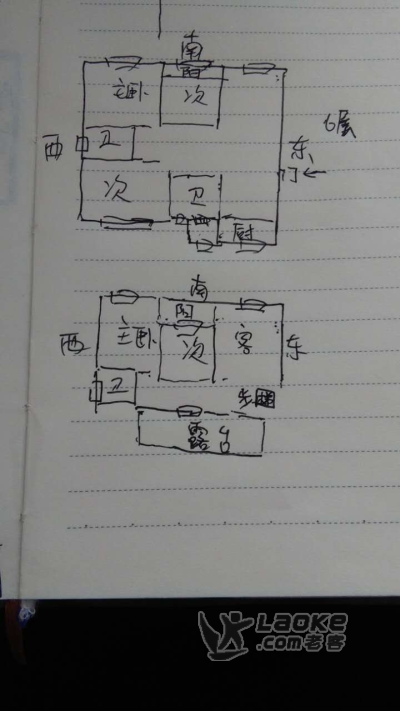 南
阳
主卧 次
6层
西 卫 东
门←
次 卫
阳
厨
南
阳
西 主卧 次 客 东
卫
露台
LAOKE
.com老客